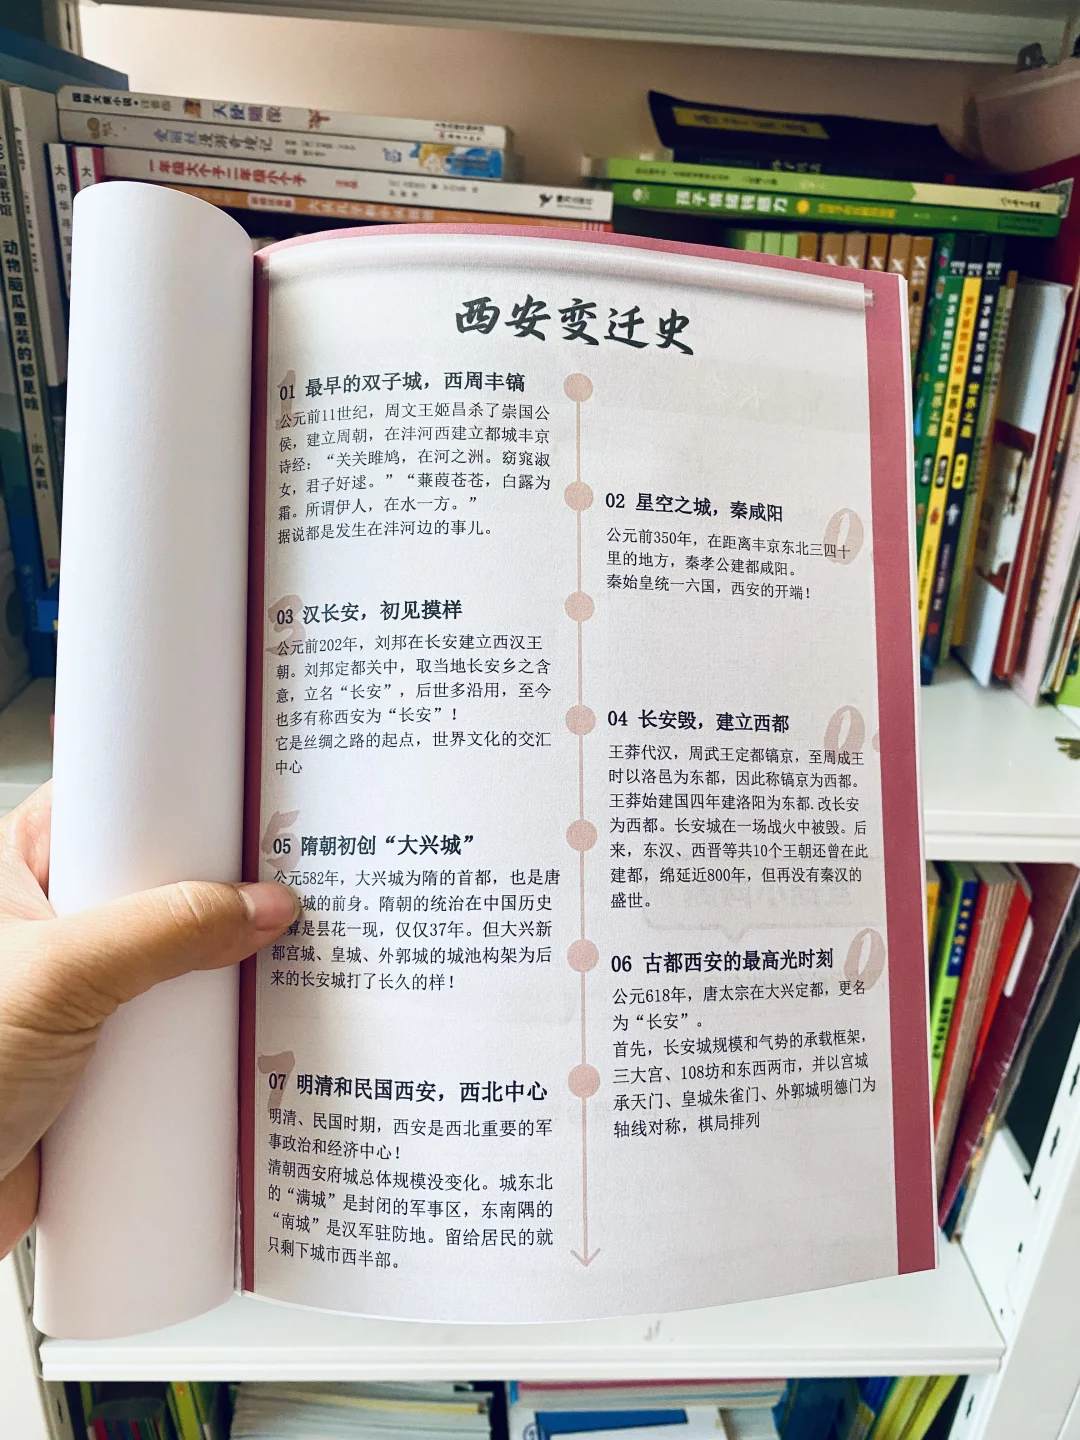 西安变迁史
01 最早的双子城，西周丰镐
公元前11世纪，周文王姬昌杀了崇国公
侯，建立周朝，在沣河西建立都城丰京
诗经：“关关雎鸠，在河之洲。窈窕淑
女，君子好逑。”“蒹葭苍苍，白露为
霜。所谓伊人，在水一方。”
据说都是发生在沣河边的事儿。
02 星空之城，秦咸阳
公元前350年，在距离丰京东北三四十
里的地方，秦孝公建都咸阳。
秦始皇统一六国，西安的开端！
03 汉长安，初见摸样
公元前202年，刘邦在长安建立西汉王
朝。刘邦定都关中，取当地长安乡之含
意，立名“长安”，后世多沿用，至今
也多有称西安为“长安”！
它是丝绸之路的起点，世界文化的交汇
中心
04 长安毁，建立西都
王莽代汉，周武王定都镐京，至周成王
时以洛邑为东都，因此称镐京为西都。
王莽始建国四年建洛阳为东都.改长安
为西都。长安城在一场战火中被毁。后
来，东汉、西晋等共10个王朝还曾在此
建都，绵延近800年，但再没有秦汉的
盛世。
05 隋朝初创“大兴城”
公元582年，大兴城为隋的首都，也是唐
城的前身。隋朝的统治在中国历史
算是昙花一现，仅仅37年。但大兴新
都宫城、皇城、外郭城的城池构架为后
来的长安城打了长久的样！
06 古都西安的最高光时刻
公元618年，唐太宗在大兴定都，更名
为“长安”。
首先，长安城规模和气势的承载框架，
三大宫、108坊和东西两市，并以宫城
承天门、皇城朱雀门、外郭城明德门为
轴线对称，棋局排列
07 明清和民国西安，西北中心
明清、民国时期，西安是西北重要的军
事政治和经济中心！
清朝西安府城总体规模没变化。城东北
的“满城”是封闭的军事区，东南隅的
“南城”是汉军驻防地。留给居民的就
只剩下城市西半部。
国际大奖小说·注音版
天使雕像
爱丽丝漫游奇境记
一年级大个子二年级小个子
接力出版社
孩子情绪转能力
动物脑瓜里装的都是啥